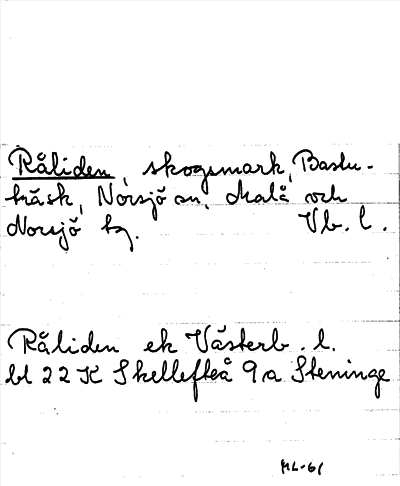 Råliden, skogsmark, Bastu-
träsk, Norsjö sn, Malå och
Norsjö tg. Vb. l.
Råliden ek Västerb. l.
bl 22 K Skellefteå 9a Steninge
ML-61